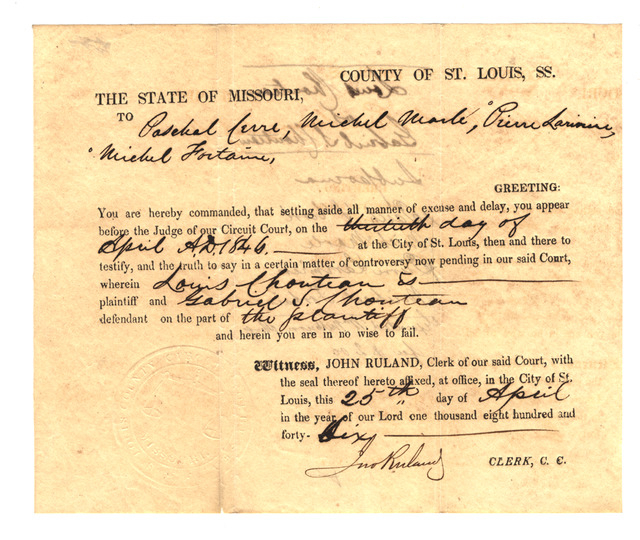 COUNTY OF ST. LOUIS, SS.
THE STATE OF MISSOURI,
TO Paschal Cerre, Michel Marlé, "Pierre Larimire,
"Michel Fortaine,
GREETING:
You are hereby commanded, that setting aside all manner of excuse and delay, you appear
before the Judge of our Circuit Court, on the thirtieth day of
April A.D. 1846. at the City of St. Louis, then and there to
testify, and the truth to say in a certain matter of controversy now pending in our said Court,
wherein Louis Chouteau is
plaintiff and Gabriel S. Chouteau
defendant on the part of the plaintiff
and herein you are in no wise to fail.
Witness, JOHN RULAND, Clerk of our said Court, with
the seal thereof hereto affixed, at office, in the City of St.
Louis, this 25th day of April
in the year of our Lord one thousand eight hundred and
forty-Six
Jno Ruland
CLERK, C. C.